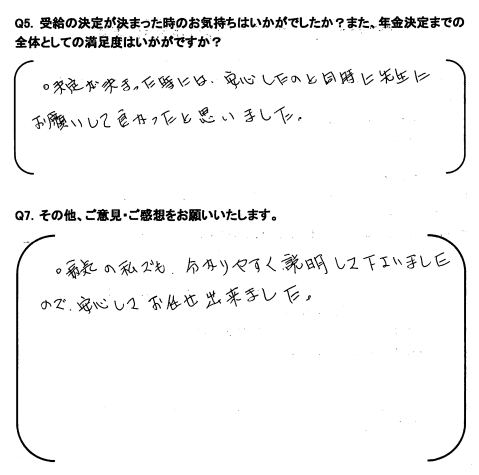 Q5. 受給の決定が決まった時のお気持ちはいかがでしたか?また、年金決定までの
全体としての満足度はいかがですか?
○決定が決まった時には、安心したのと同時に先生に
お願いして良かったと思いました。
Q7. その他、ご意見・ご感想をお願いいたします。
の私でも、分かりやすく説明して下さいました
ので、安心してお任せ出来ました。